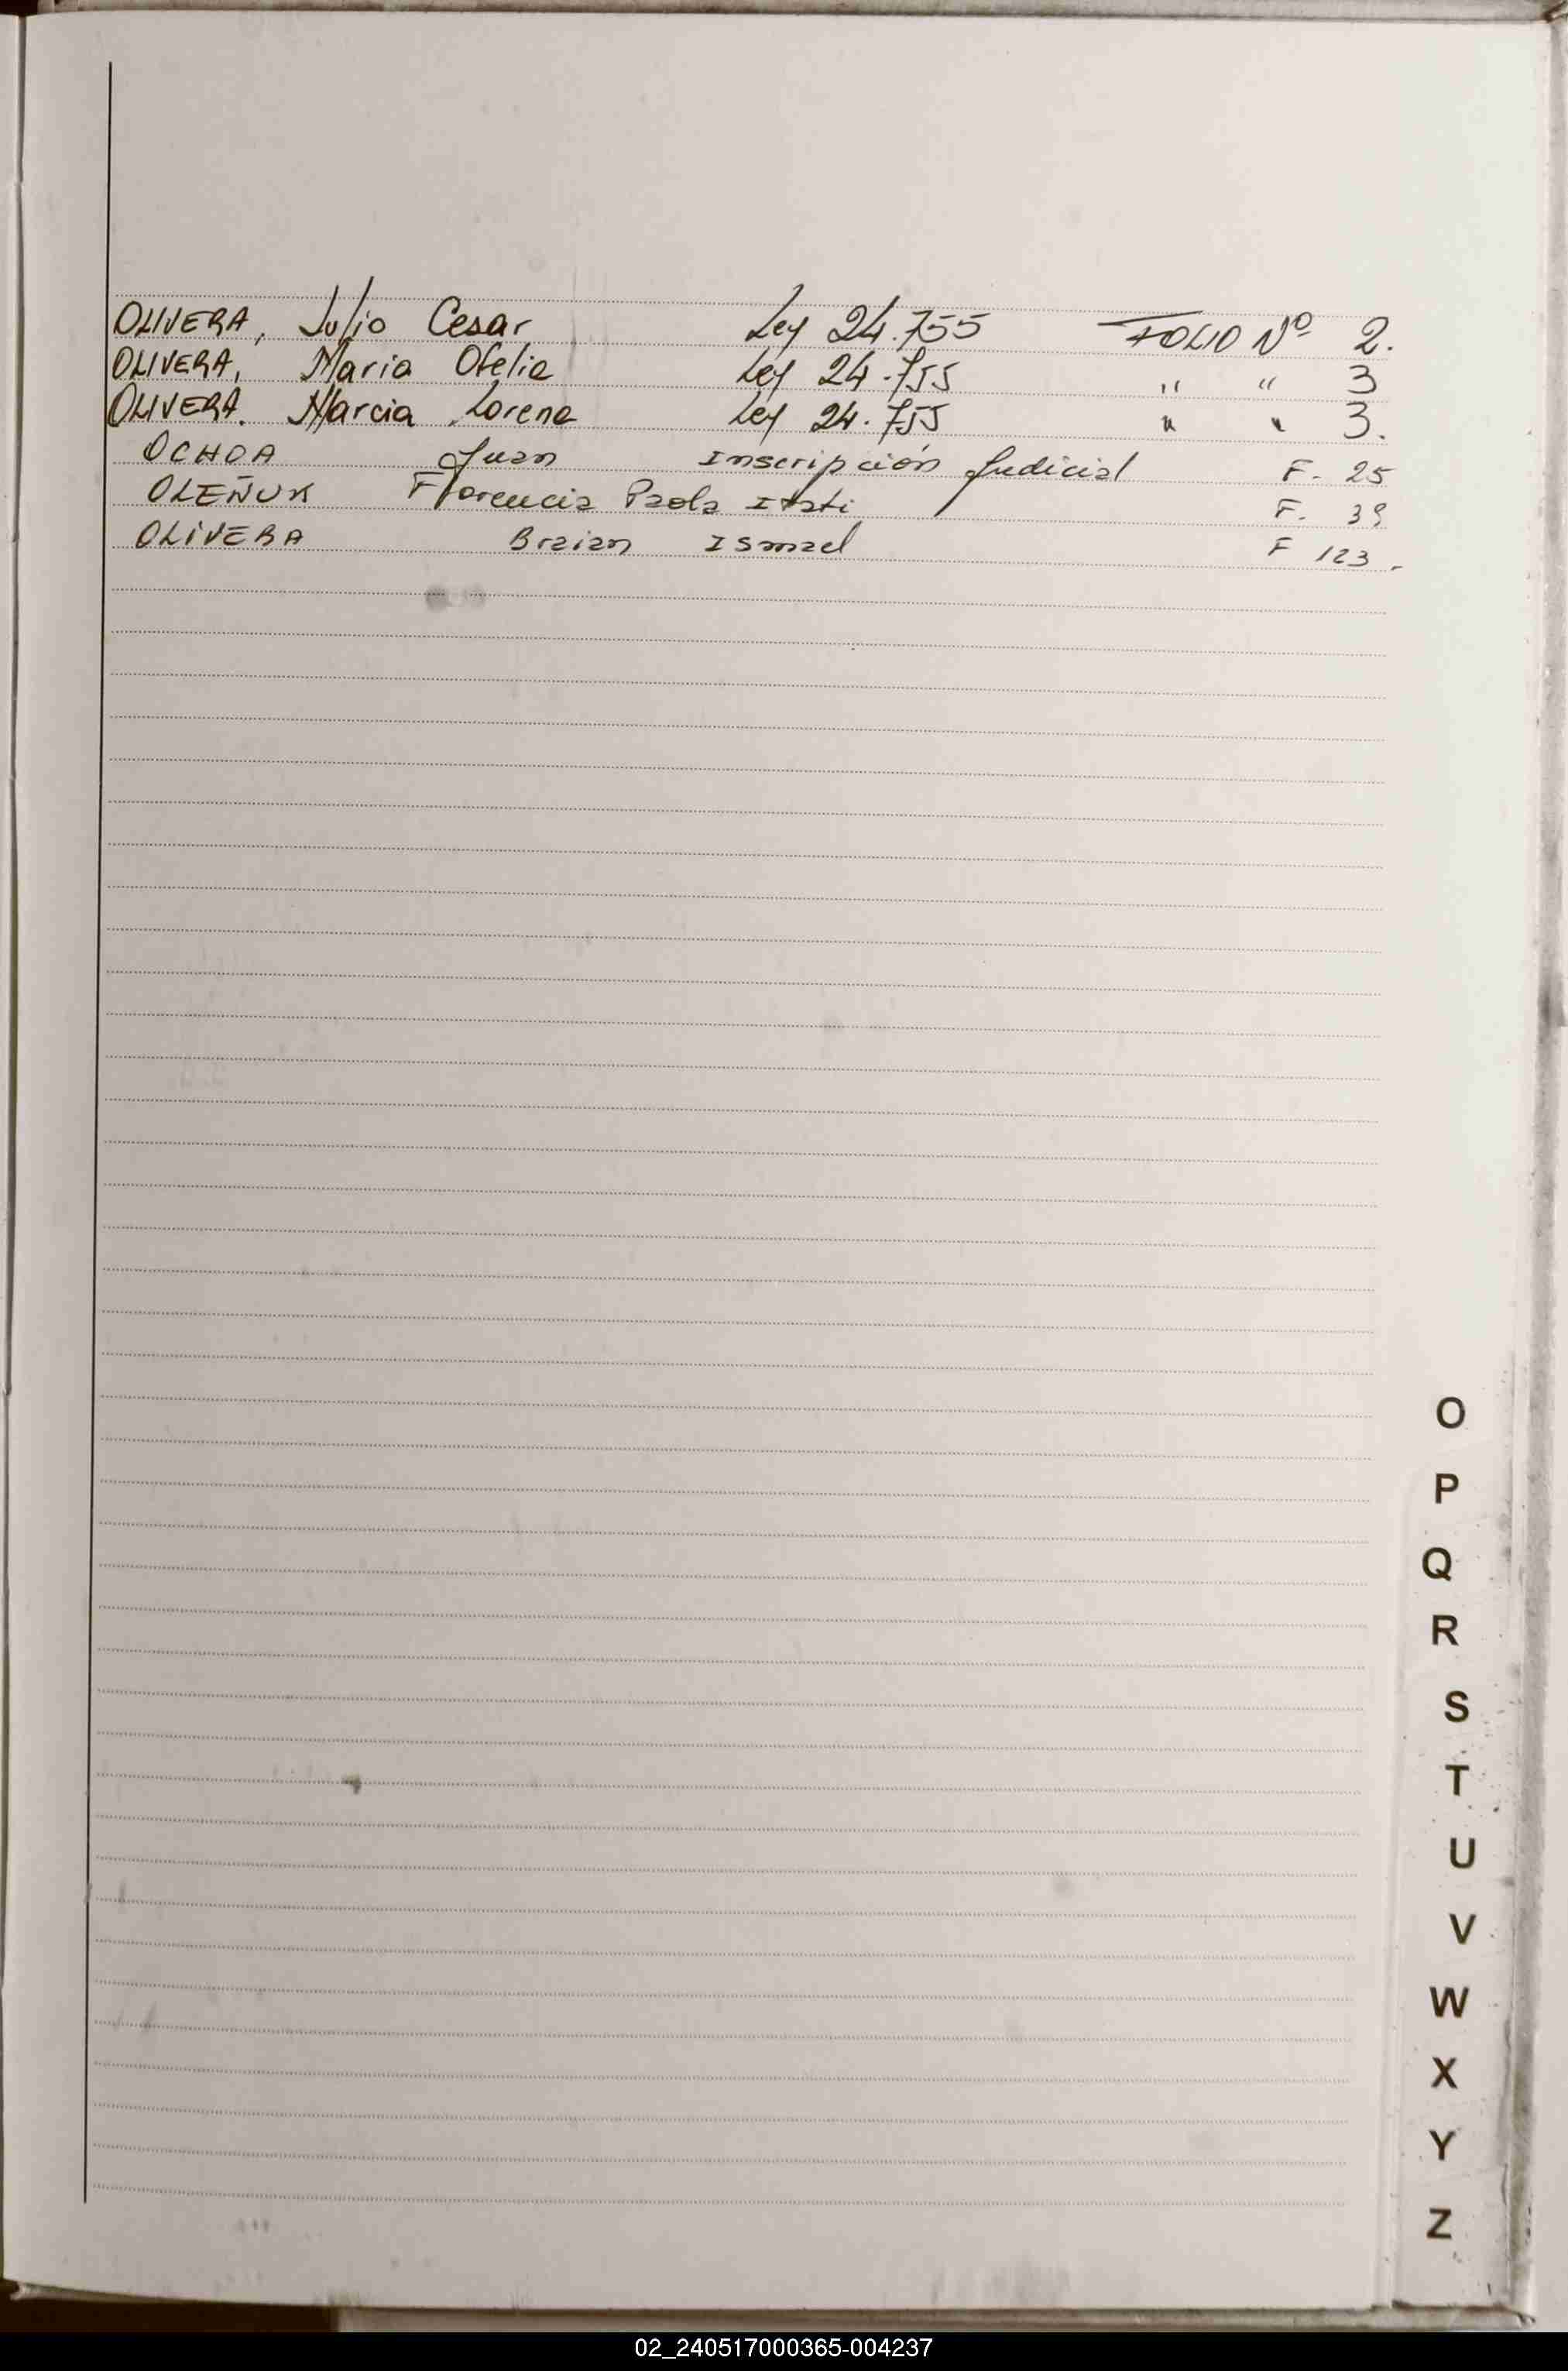 OLIVERA, Julio Cesar Ley 24.755 FOLIO Nº 2.
OLIVERA, Maria Ofelia Ley 24.755 " " 3
OLIVERA. Marcia Lorena Ley 24.755 " " 3.
OCHOA Juan Inscripción Judicial F. 25
OLEÑUK Florencia Paola Itati F. 39
OLIVERA Braian Ismael F 123.
O
P
Q
R
S
T
U
V
W
X
Y
Z
02_240517000365-004237